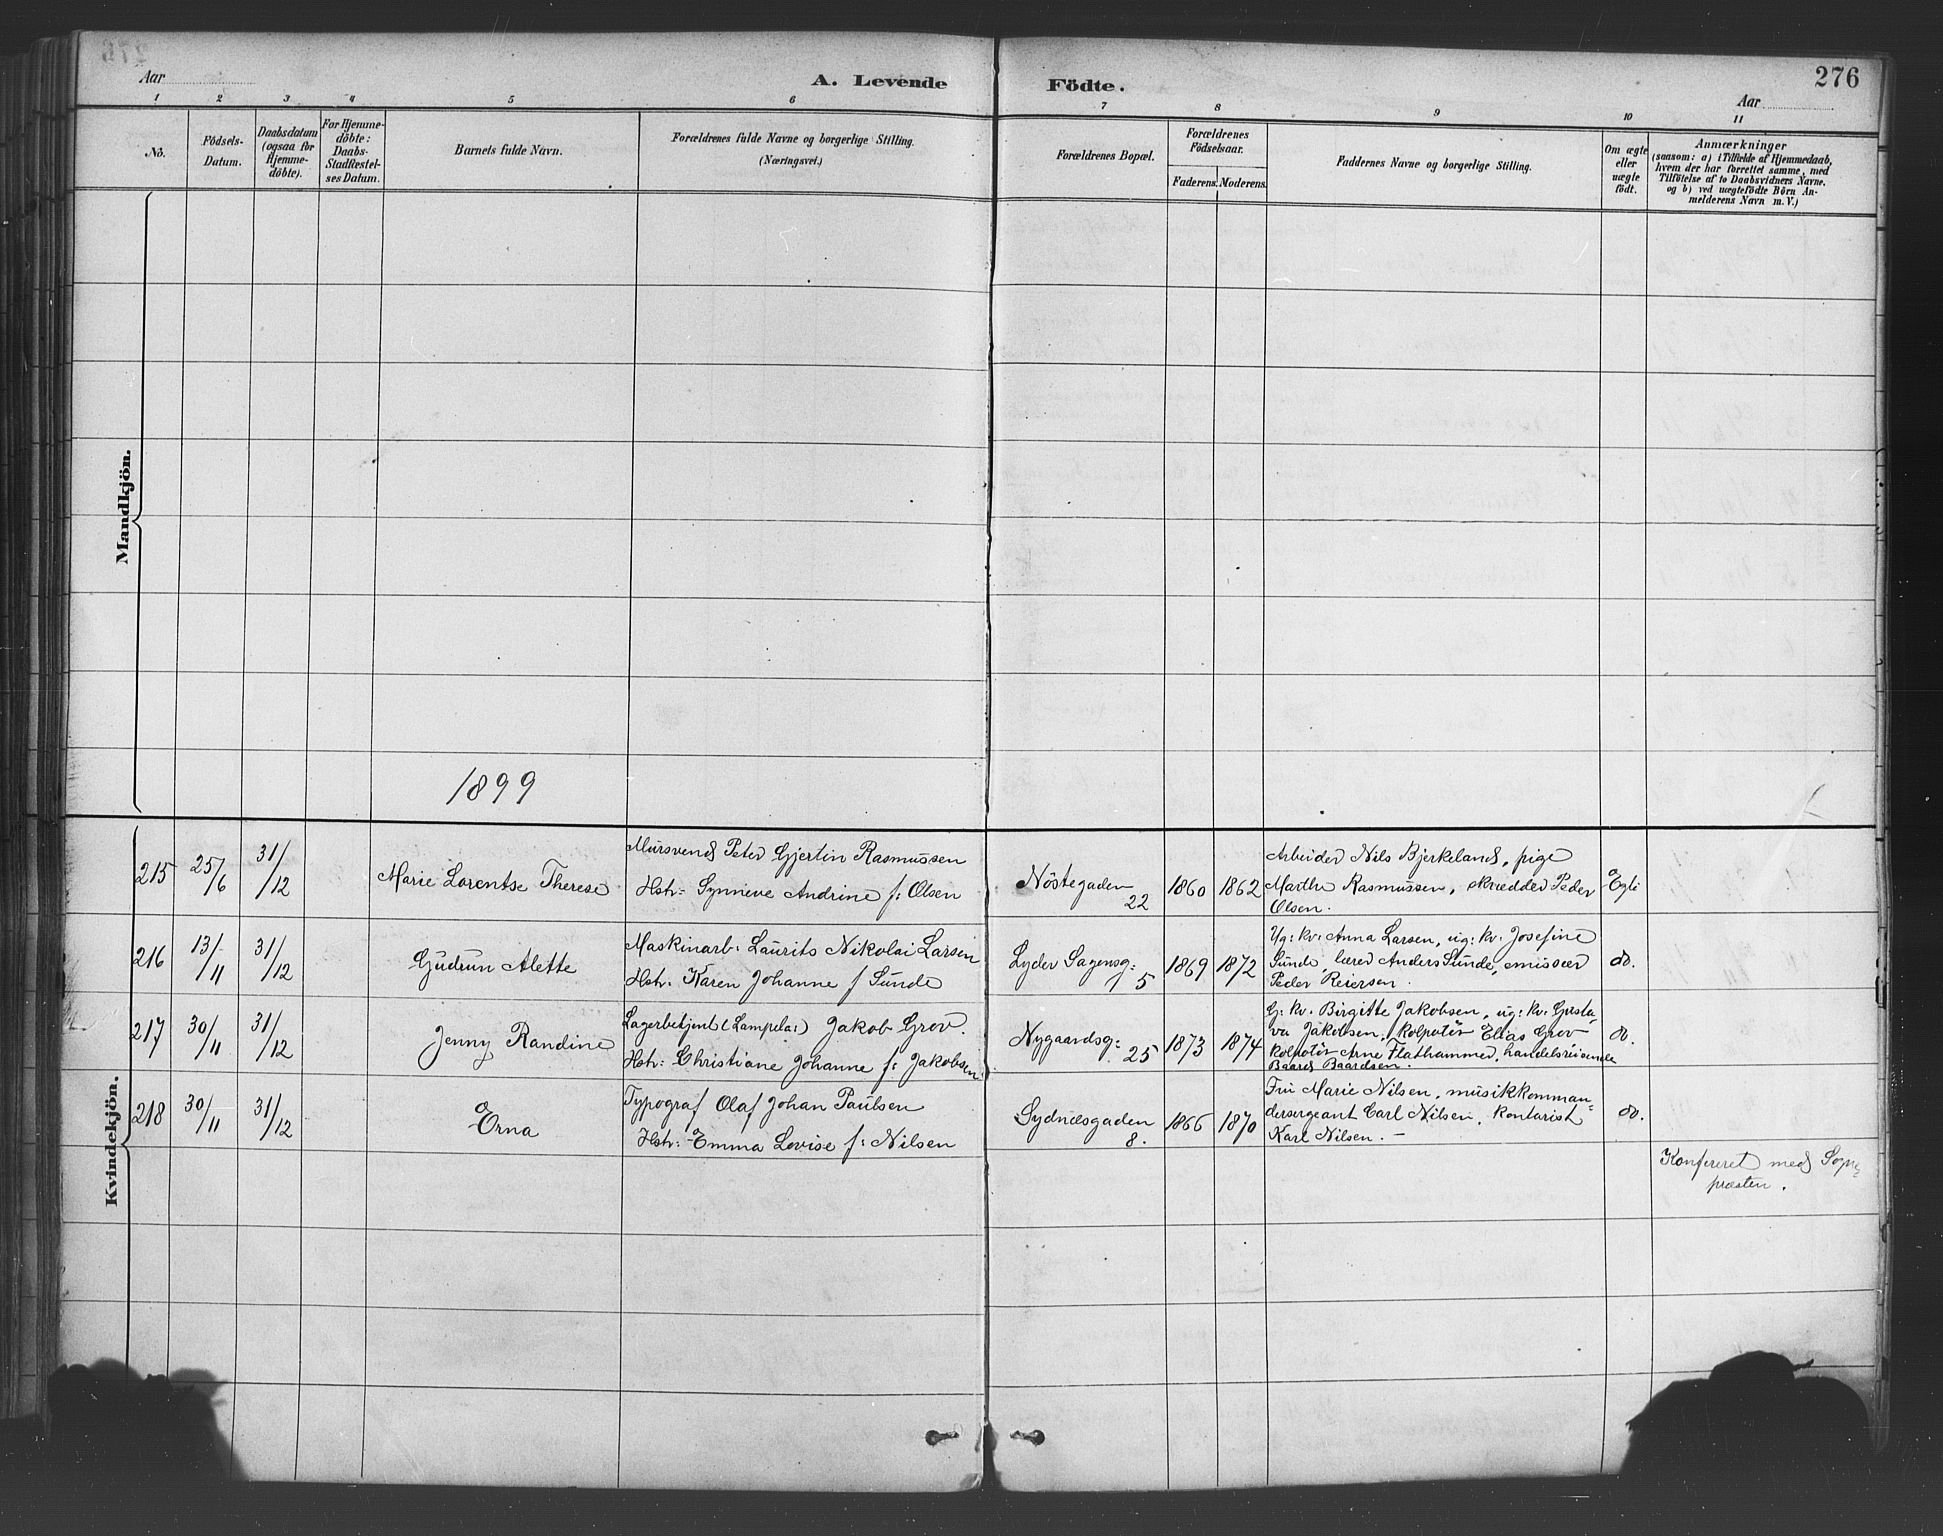 276
Aar
A. Levende Födte.
Aar
1 2 3 4 5 6 7 8 9 10 11
No.
Födsels-
Datum.
Daabsdatum
(ogsaa for
Hjemme-
döbte).
For Hjemme-
döbte:
Daabs-
Stadfæstel-
ses Datum.
Barnets fulde Navn.
Forældrenes fulde Navne og borgerlige Stilling.
(Næringsvei.)
Forældrenes Bopæl.
Forældrenes
Födselsaar.
Faderens. Moderens.
Faddernes Navne og borgerlige Stilling.
Om ægte
eller
uægte
födt.
Anmærkninger
(saasom: a) i Tilfælde af Hjemmedaab,
hvem der har forrettet samme, med
Tilföielse af to Daabsvidners Navne,
og b) ved uægtefödte Börn An-
melderens Navn m. V.)
Mandkjön.
1899
Kvindekjön.
215
25/6
31/12
Marie Lorentse Therese
Mursvend Peter Gjertin Rasmussen
Hstr: Synneve Andrine f: Olsen
Nöstegaden
22
1860
1862
Arbeider Nils Bjerkeland, pige
Marthe Rasmussen, skrædder Peder
Olsen.
Egte
216
13/11
31/12
Gudrun Alette
Maskinarb: Laurits Nikolai Larsen
Hstr: Karen Johanne f Sunde
Lyder Sagensg:
5
1869
1872
Ug: kv: Anna Larsen, ug: kv: Josefine
Sunde, lærer Anders Sunde, emissær
Peder Reiersen.
do.
217
30/11
31/12
Jenny Randine
Lagerbetjent (Lampela:) Jakob Grov.
Hstr: Christiane Johanne f: Jakobsen.
Nygaardsg:
25
1873
1874
G: kv. Birgitte Jakobsen, ug: kv: Gusta-
va Jakobsen, kolpotör Elias Grov
kolpotör Arne Flathammer, handelsreisende
Baard Baardsen.
do.
218
30/11
31/12
Erna
Typograf Olaf Johan Paulsen
Hstr: Emma Lovise f: Nilsen
Sydnæsgaden
8.
1866
1870
Fru Marie Nilsen, musikkomman-
dersergeant Carl Nilsen, kontorist
Karl Nilsen. –
do.
Konfereret med Sogne-
præsten.